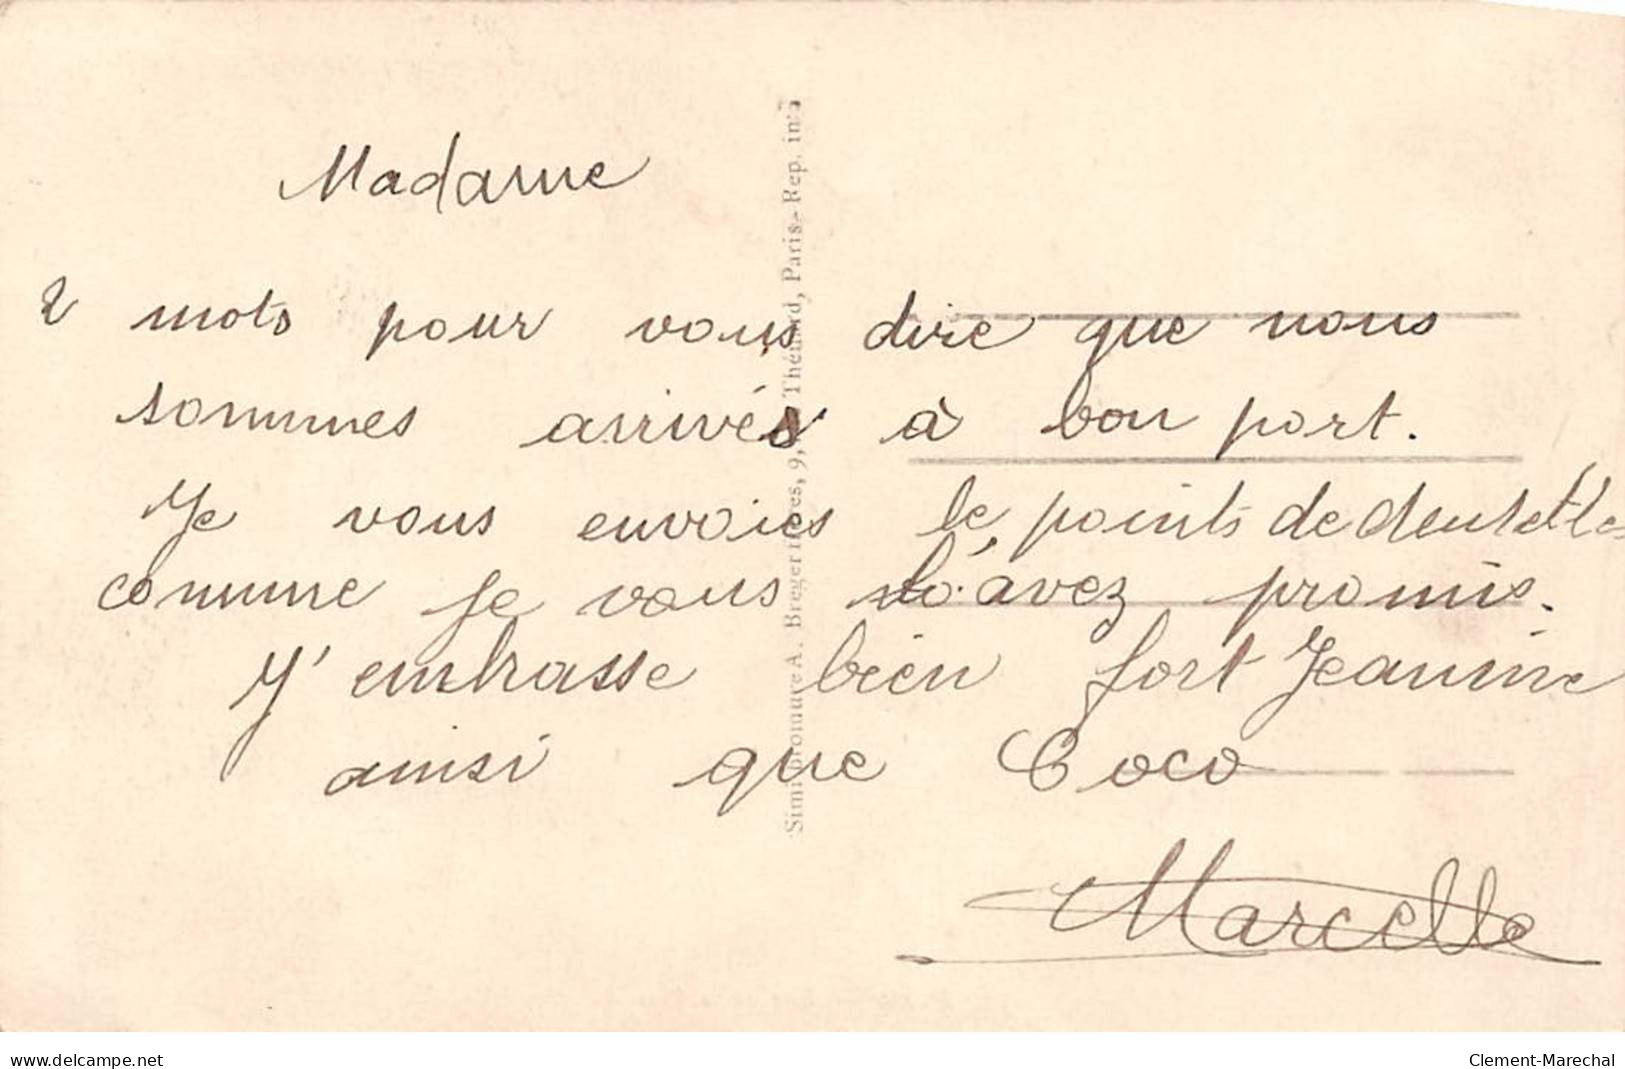 Madame
2 mots pour vous dire que nous
sommes arrivés à bon port.
Je vous envoies le points de dentelles
comme je vous l'avez promis.
J'embrasse bien fort Jeanine
ainsi que Coco
Marcelle
Simili-bromure A. Breger frères, 9, Thénard, Paris - Rep. int
www.delcampe.net
Clement-Marechal